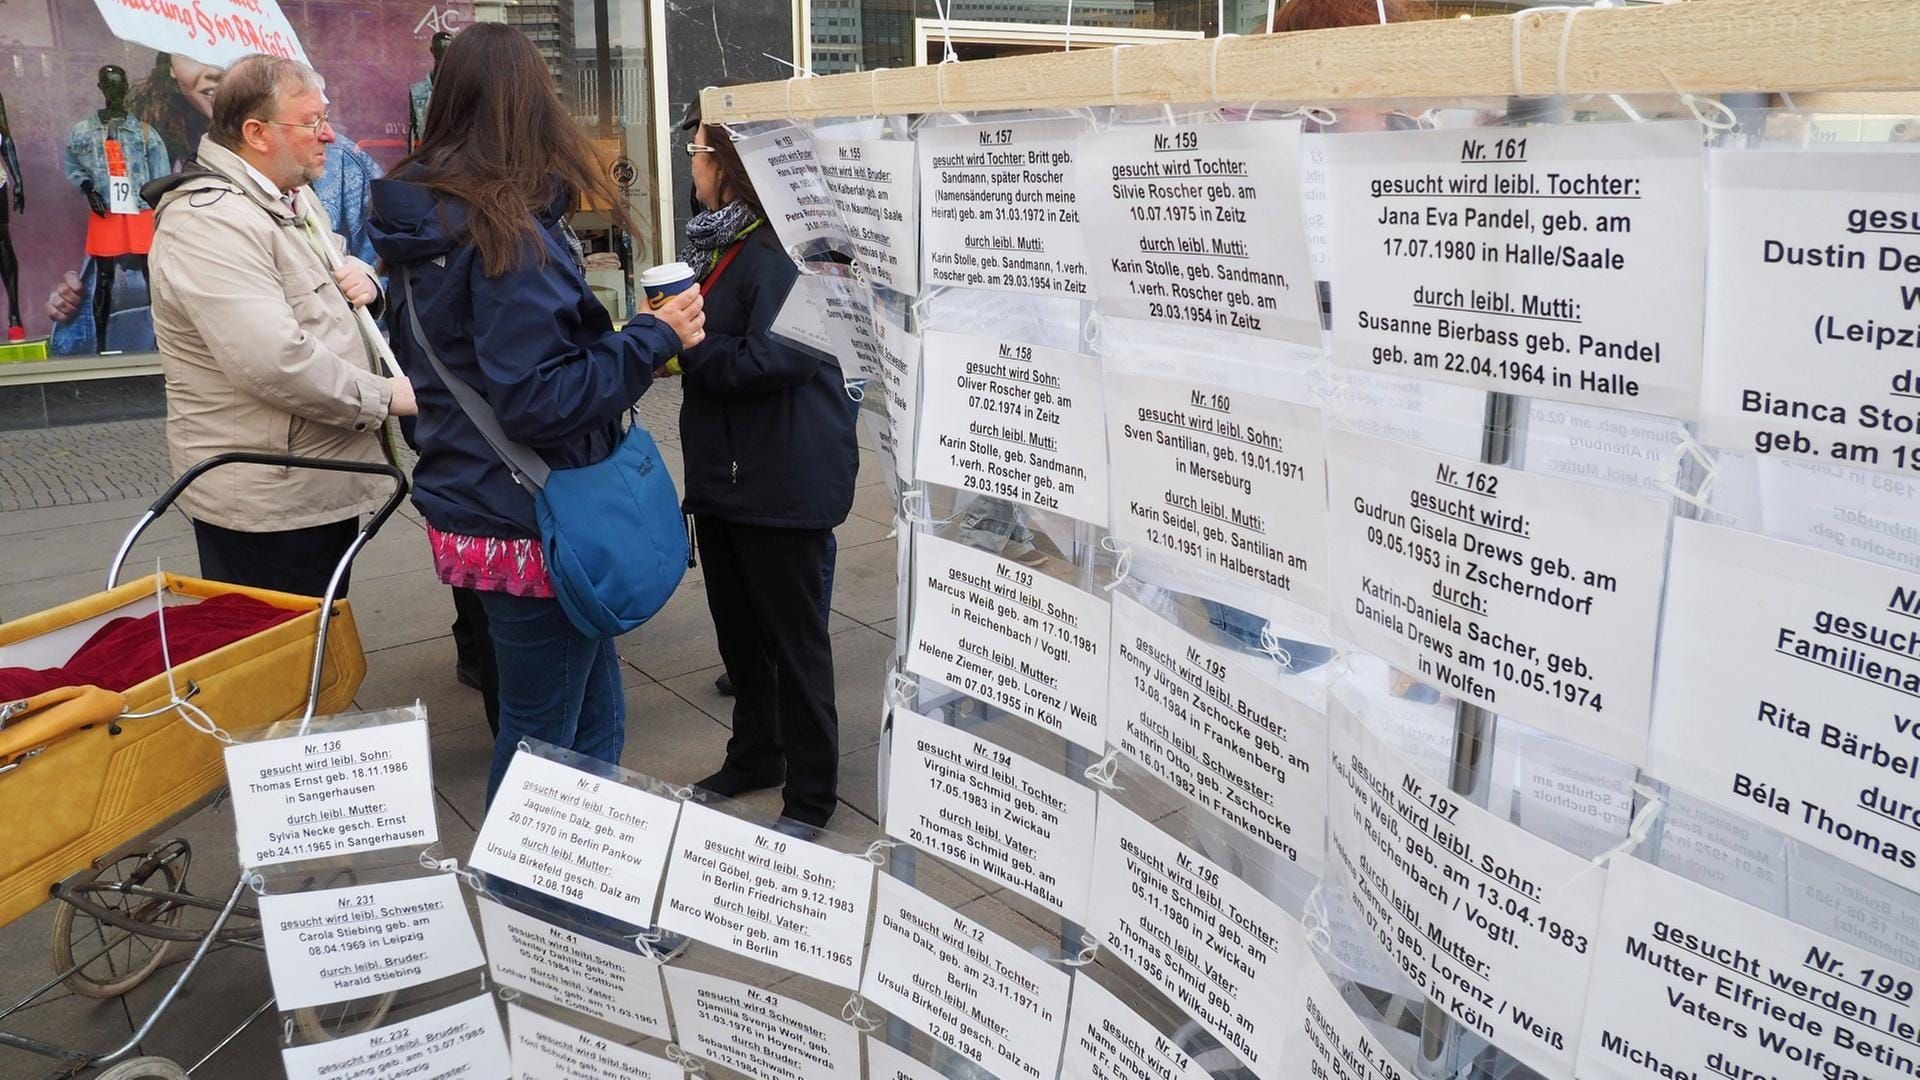 § 60
AC
19
Nr. 153
Nr. 155
gesucht wird leibl. Bruder:
in Naumburg/ Saale
Nr. 157
gesucht wird Tochter: Britt geb.
Sandmann, später Roscher
(Namensänderung durch meine
Heirat) geb. am 31.03.1972 in Zeitz
durch leibl. Mutti:
Karin Stolle, geb. Sandmann, 1.verh.
Roscher geb. am 29.03.1954 in Zeitz
Nr. 159
gesucht wird Tochter:
Silvie Roscher geb. am
10.07.1975 in Zeitz
durch leibl. Mutti:
Karin Stolle, geb. Sandmann,
1.verh. Roscher geb. am
29.03.1954 in Zeitz
Nr. 161
gesucht wird leibl. Tochter:
Jana Eva Pandel, geb. am
17.07.1980 in Halle/Saale
durch leibl. Mutti:
Susanne Bierbass geb. Pandel
geb. am 22.04.1964 in Halle
gesu
Dustin De
W
(Leipzi
du
Bianca Stoi
geb. am 19
Nr. 158
gesucht wird Sohn:
Oliver Roscher geb. am
07.02.1974 in Zeitz
durch leibl. Mutti:
Karin Stolle, geb. Sandmann,
1.verh. Roscher geb. am
29.03.1954 in Zeitz
Nr. 160
gesucht wird leibl. Sohn:
Sven Santilian, geb. 19.01.1971
in Merseburg
durch leibl. Mutti:
Karin Seidel, geb. Santilian am
12.10.1951 in Halberstadt
Nr. 162
gesucht wird:
Gudrun Gisela Drews geb. am
09.05.1953 in Zscherndorf
durch:
Katrin-Daniela Sacher, geb.
Daniela Drews am 10.05.1974
in Wolfen
Nr. 193
gesucht wird leibl. Sohn:
Marcus Weiß geb. am 17.10.1981
in Reichenbach / Vogtl.
durch leibl. Mutter:
Helene Ziemer, geb. Lorenz / Weiß
am 07.03.1955 in Köln
Nr. 195
gesucht wird leibl. Bruder:
Ronny Jürgen Zschocke geb. am
13.08.1984 in Frankenberg
durch leibl. Schwester:
Kathrin Otto, geb. Zschocke
am 16.01.1982 in Frankenberg
gesuch
Familiena
vo
Rita Bärbel
durc
Béla Thomas
Nr. 194
gesucht wird leibl. Tochter:
Virginia Schmid geb. am
17.05.1983 in Zwickau
durch leibl. Vater:
Thomas Schmid geb. am
20.11.1956 in Wilkau-Haßlau
Nr. 196
gesucht wird leibl. Tochter:
Virginie Schmid geb. am
05.11.1980 in Zwickau
durch leibl. Vater:
Thomas Schmid geb. am
20.11.1956 in Wilkau-Haßlau
Nr. 197
gesucht wird leibl. Sohn:
Kai-Uwe Weiß, geb. am 13.04.1983
in Reichenbach / Vogtl.
durch leibl. Mutter:
Helene Ziemer, geb. Lorenz / Weiß
am 07.03.1955 in Köln
Nr. 199
gesucht werden le
Mutter Elfriede Betin
Vaters Wolfga
durc
Michael
Nr. 136
gesucht wird leibl. Sohn:
Thomas Ernst geb. 18.11.1986
in Sangerhausen
durch leibl. Mutter:
Sylvia Necke gesch. Ernst
geb.24.11.1965 in Sangerhausen
Nr. 8
gesucht wird leibl. Tochter:
Jaqueline Dalz, geb. am
20.07.1970 in Berlin Pankow
durch leibl. Mutter:
Ursula Birkefeld gesch. Dalz am
12.08.1948
Nr. 10
gesucht wird leibl. Sohn:
Marcel Göbel, geb. am 9.12.1983
in Berlin Friedrichshain
durch leibl. Vater:
Marco Wobser geb. am 16.11.1965
in Berlin
Nr. 12
gesucht wird leibl. Tochter:
Diana Dalz, geb. am 23.11.1971 in
Berlin
durch leibl. Mutter:
Ursula Birkefeld gesch. Dalz am
12.08.1948
Nr. 14
gesucht wird l
Name unbek
mit Fr. Em
Nr. 231
gesucht wird leibl. Schwester:
Carola Stiebing geb. am
08.04.1969 in Leipzig
durch leibl. Bruder:
Harald Stiebing
Nr. 41
gesucht wird leibl.Sohn:
Stanley Dahlitz geb. am
05.02.1984 in Cottbus
durch leibl. Vater:
Lothar Nahke, geb. am 11.03.1961
in Cottbus
Nr. 43
gesucht wird Schwester:
Djamilia Svenja Wolf, geb.
31.03.1976 in Hoyerswerda
durch Bruder:
Sebastian Schwalm
01.12.1984 in
Nr. 232
gesucht wird leibl. Bruder:
Lang geb. am 13.07.1985
Leipzig
Nr. 42
gesucht wird leibl. Sohn:
Toni Schulze geb. am
gesucht wird
Susan